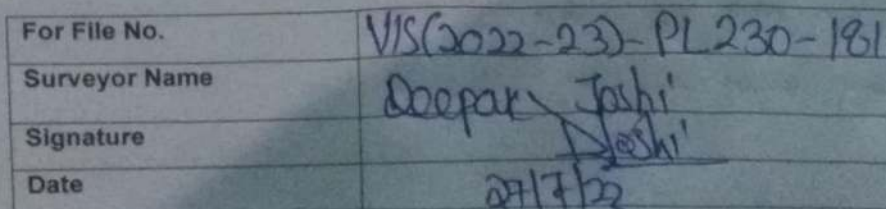 For File No. VIS(2022-23)-PL230-181
Surveyor Name Deepak Joshi
Signature DJoshi
Date 27/7/22